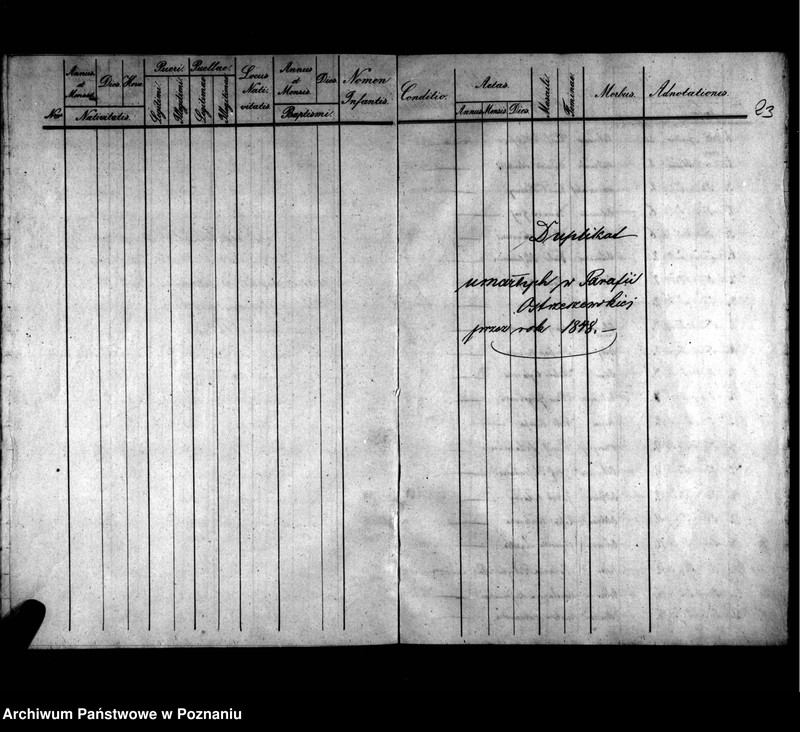 Nro Annus et Mensis Dies Hora Nativitatis.
Pueri. Legitimi Illegitimi
Puellae. Legitimae Illegitimae
Locus Nativitatis
Annus et Mensis Dies Baptismi.
Nomen Infantis.
Conditio.
Aetas. Annus Mensis Dies.
Masculi
Feminae
Morbus.
Adnotationes.
23
Duplikat
umarłych w Parafii
Ostrzeszewskiej
przez rok 1848.
Archiwum Państwowe w Poznaniu